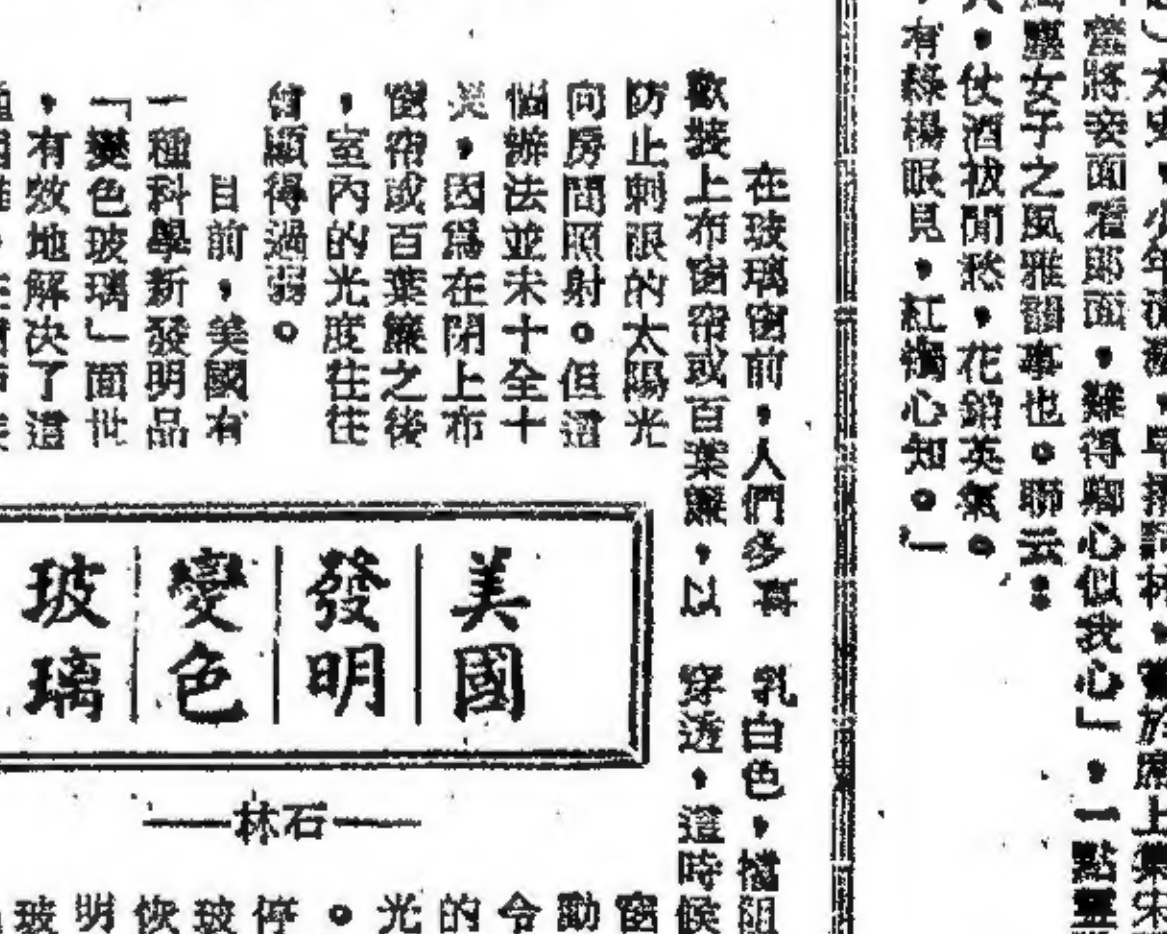 太史，少年
當將妾面看郎面，難得鄉心似我心」，一點
塵女子之風雅韻事也。聯云：
，仗酒祓閒愁，花銷英氣。
有綠楊眼見，紅燭心知。」
在玻璃窗前，人們多喜
歡裝上布窗帘或百葉簾，以
防止刺眼的太陽光
向房間照射。但這
個辦法並未十全十
美，因爲在閉上布
窗帘或百葉簾之後
，室內的光度往往
會顯得過弱。
目前，美國有
一種科學新發明品
「變色玻璃」面世
，有效地解决了這
美國
發明
變色
玻璃
——林石——
乳白色，擋阻
穿透，這時候
窗
動
令
的
光
。
停
玻
恢
明
玻